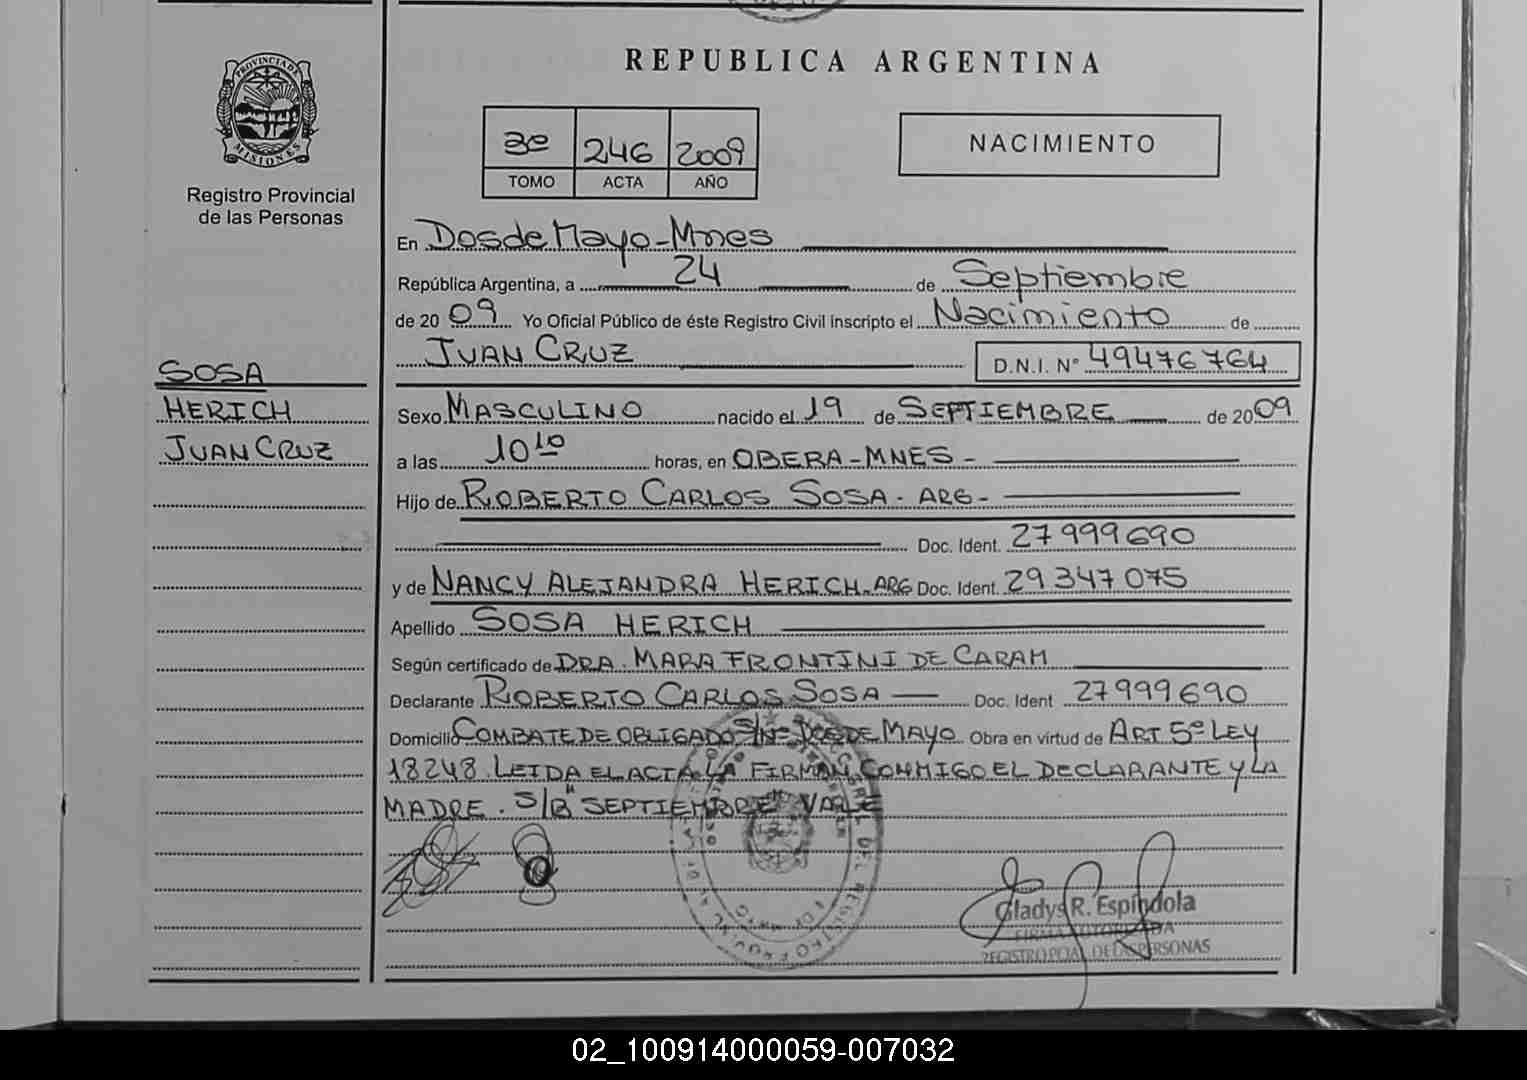 REPUBLICA ARGENTINA
PROVINCIA DE
MISIONES
Registro Provincial
de las Personas
3º 246 2009
TOMO ACTA AÑO
NACIMIENTO
En Dos de Mayo - Mnes
República Argentina, a 24 de Septiembre
de 20 09 Yo Oficial Público de éste Registro Civil inscripto el Nacimiento de
JUAN CRUZ D.N.I. Nº 49476764
SOSA
HERICH
JUAN CRUZ
Sexo MASCULINO nacido el 19 de SEPTIEMBRE de 20 09
a las 10 10 horas, en OBERA - MNES -
Hijo de ROBERTO CARLOS SOSA - ARG -
Doc. Ident. 27 999 690
y de NANCY ALEJANDRA HERICH - ARG Doc. Ident. 29 347 075
Apellido SOSA HERICH
Según certificado de DRA. MARA FRONTINI DE CARAM
Declarante ROBERTO CARLOS SOSA Doc. Ident 27 999 690
Domicilio COMBATE DE OBLIGADO S/Nº DOS DE MAYO Obra en virtud de ART 5º LEY
18248. LEIDA EL ACTA LA FIRMAN CONMIGO EL DECLARANTE Y LA
MADRE. S/B "SEPTIEMBRE" VALE
Gladys R. Espíndola
FIRMA AUTORIZADA
REGISTRO PCIAL. DE LAS PERSONAS
02_100914000059-007032